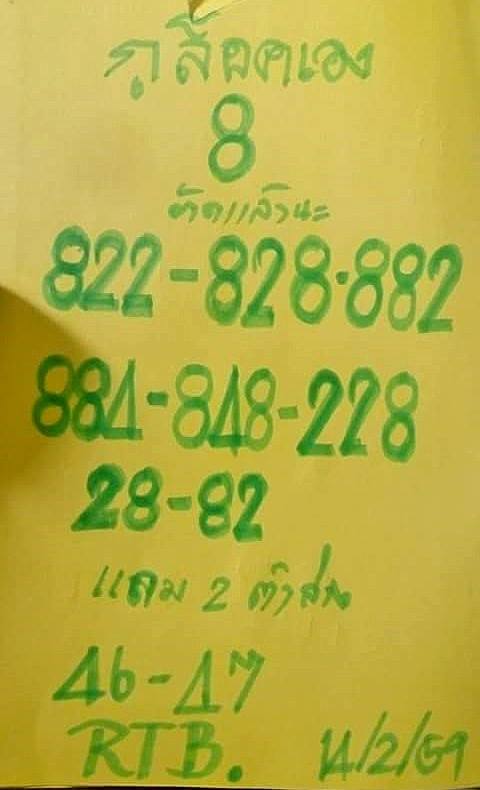 กูล็อคเอง
8
ตัดแล้วนะ
822-828-882
884-848-228
28-82
แถม 2 ตัวล่าง
46-47
RTB. 14/2/69